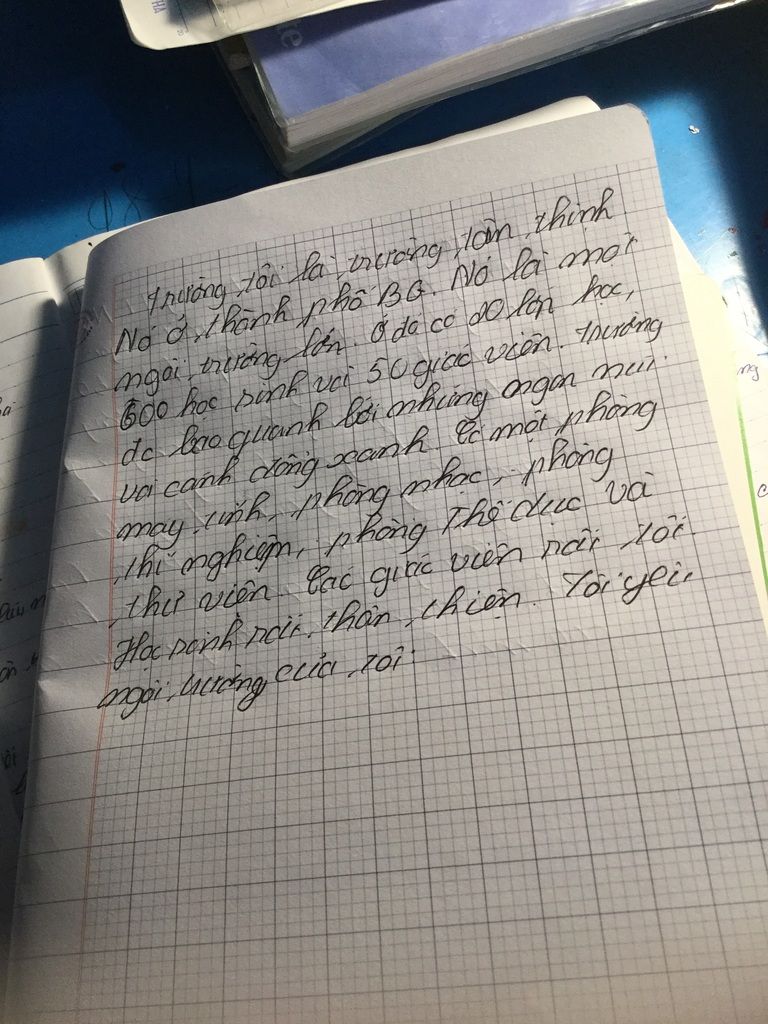 Trường tôi là trường tân thịnh
Nó ở thành phố BG. Nó là một
ngôi trường lớn. Ở đó có 20 lớp học,
600 học sinh và 50 giáo viên. Trường
đc bao quanh bởi những ngọn núi
và cánh đồng xanh. Có một phòng
máy tính, phòng nhạc, phòng
thí nghiệm, phòng Thể dục và
thư viện. Các giáo viên rất tốt.
Học sinh rất thân thiện. Tôi yêu
ngôi trường của tôi.